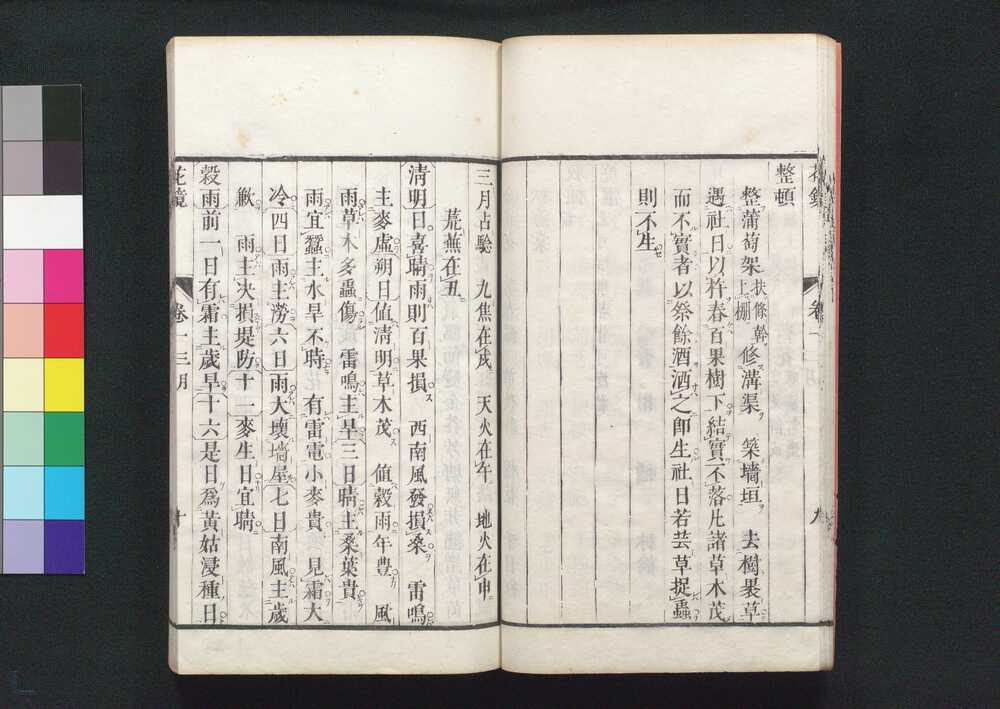 整頓
整蒲萄架 扶條幹上棚 修溝渠 築墻垣 去樹裹草
遇社日以杵舂百果樹下結實不落凡諸草木茂
而不實者以祭餘酒洒之即生社日若芸草捉蟲
則不生
三月占驗 九焦在戌 天火在午 地火在申
荒蕪在丑
清明日喜晴雨則百果損 西南風發損桑 雷鳴
主麥虛朔日値淸明草木茂 値穀雨年豊 風
雨草木多蟲傷 雷鳴主旱三日晴主桑葉貴
雨宜蠶主水旱不時 有雷電小麥貴 見霜大
冷四日雨主澇六日雨大壞墻屋七日南風主歲
歉 雨主決損堤防十一麥生日宜晴
穀雨前一日有霜主歲旱十六是日爲黃姑浸種日
花鏡 卷一三月 十